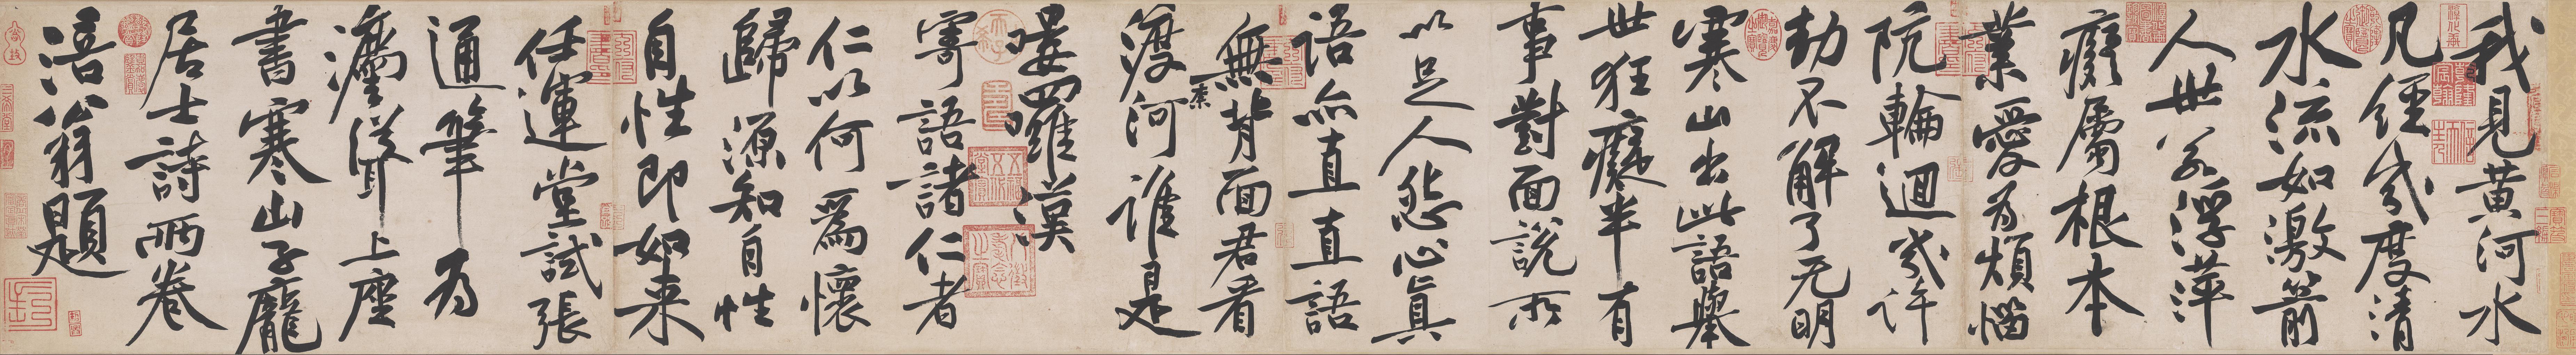 我見黃河水
凡經幾度清
水流如激箭
人世若浮萍
癡屬根本
業愛為煩惱
阬輪迴幾許
劫不解了无明
寒山出此語舉
世狂癡半有
事對面說所
以足人怨心真
語亦直直語
無背面君看
渡柰河誰是
嘍囉漢
寄語諸仁者
仁以何為懷
歸源知自性
自性即如来
任運堂試張
通筆為
灋聳上座
書寒山子龐
居士詩兩卷
涪翁題